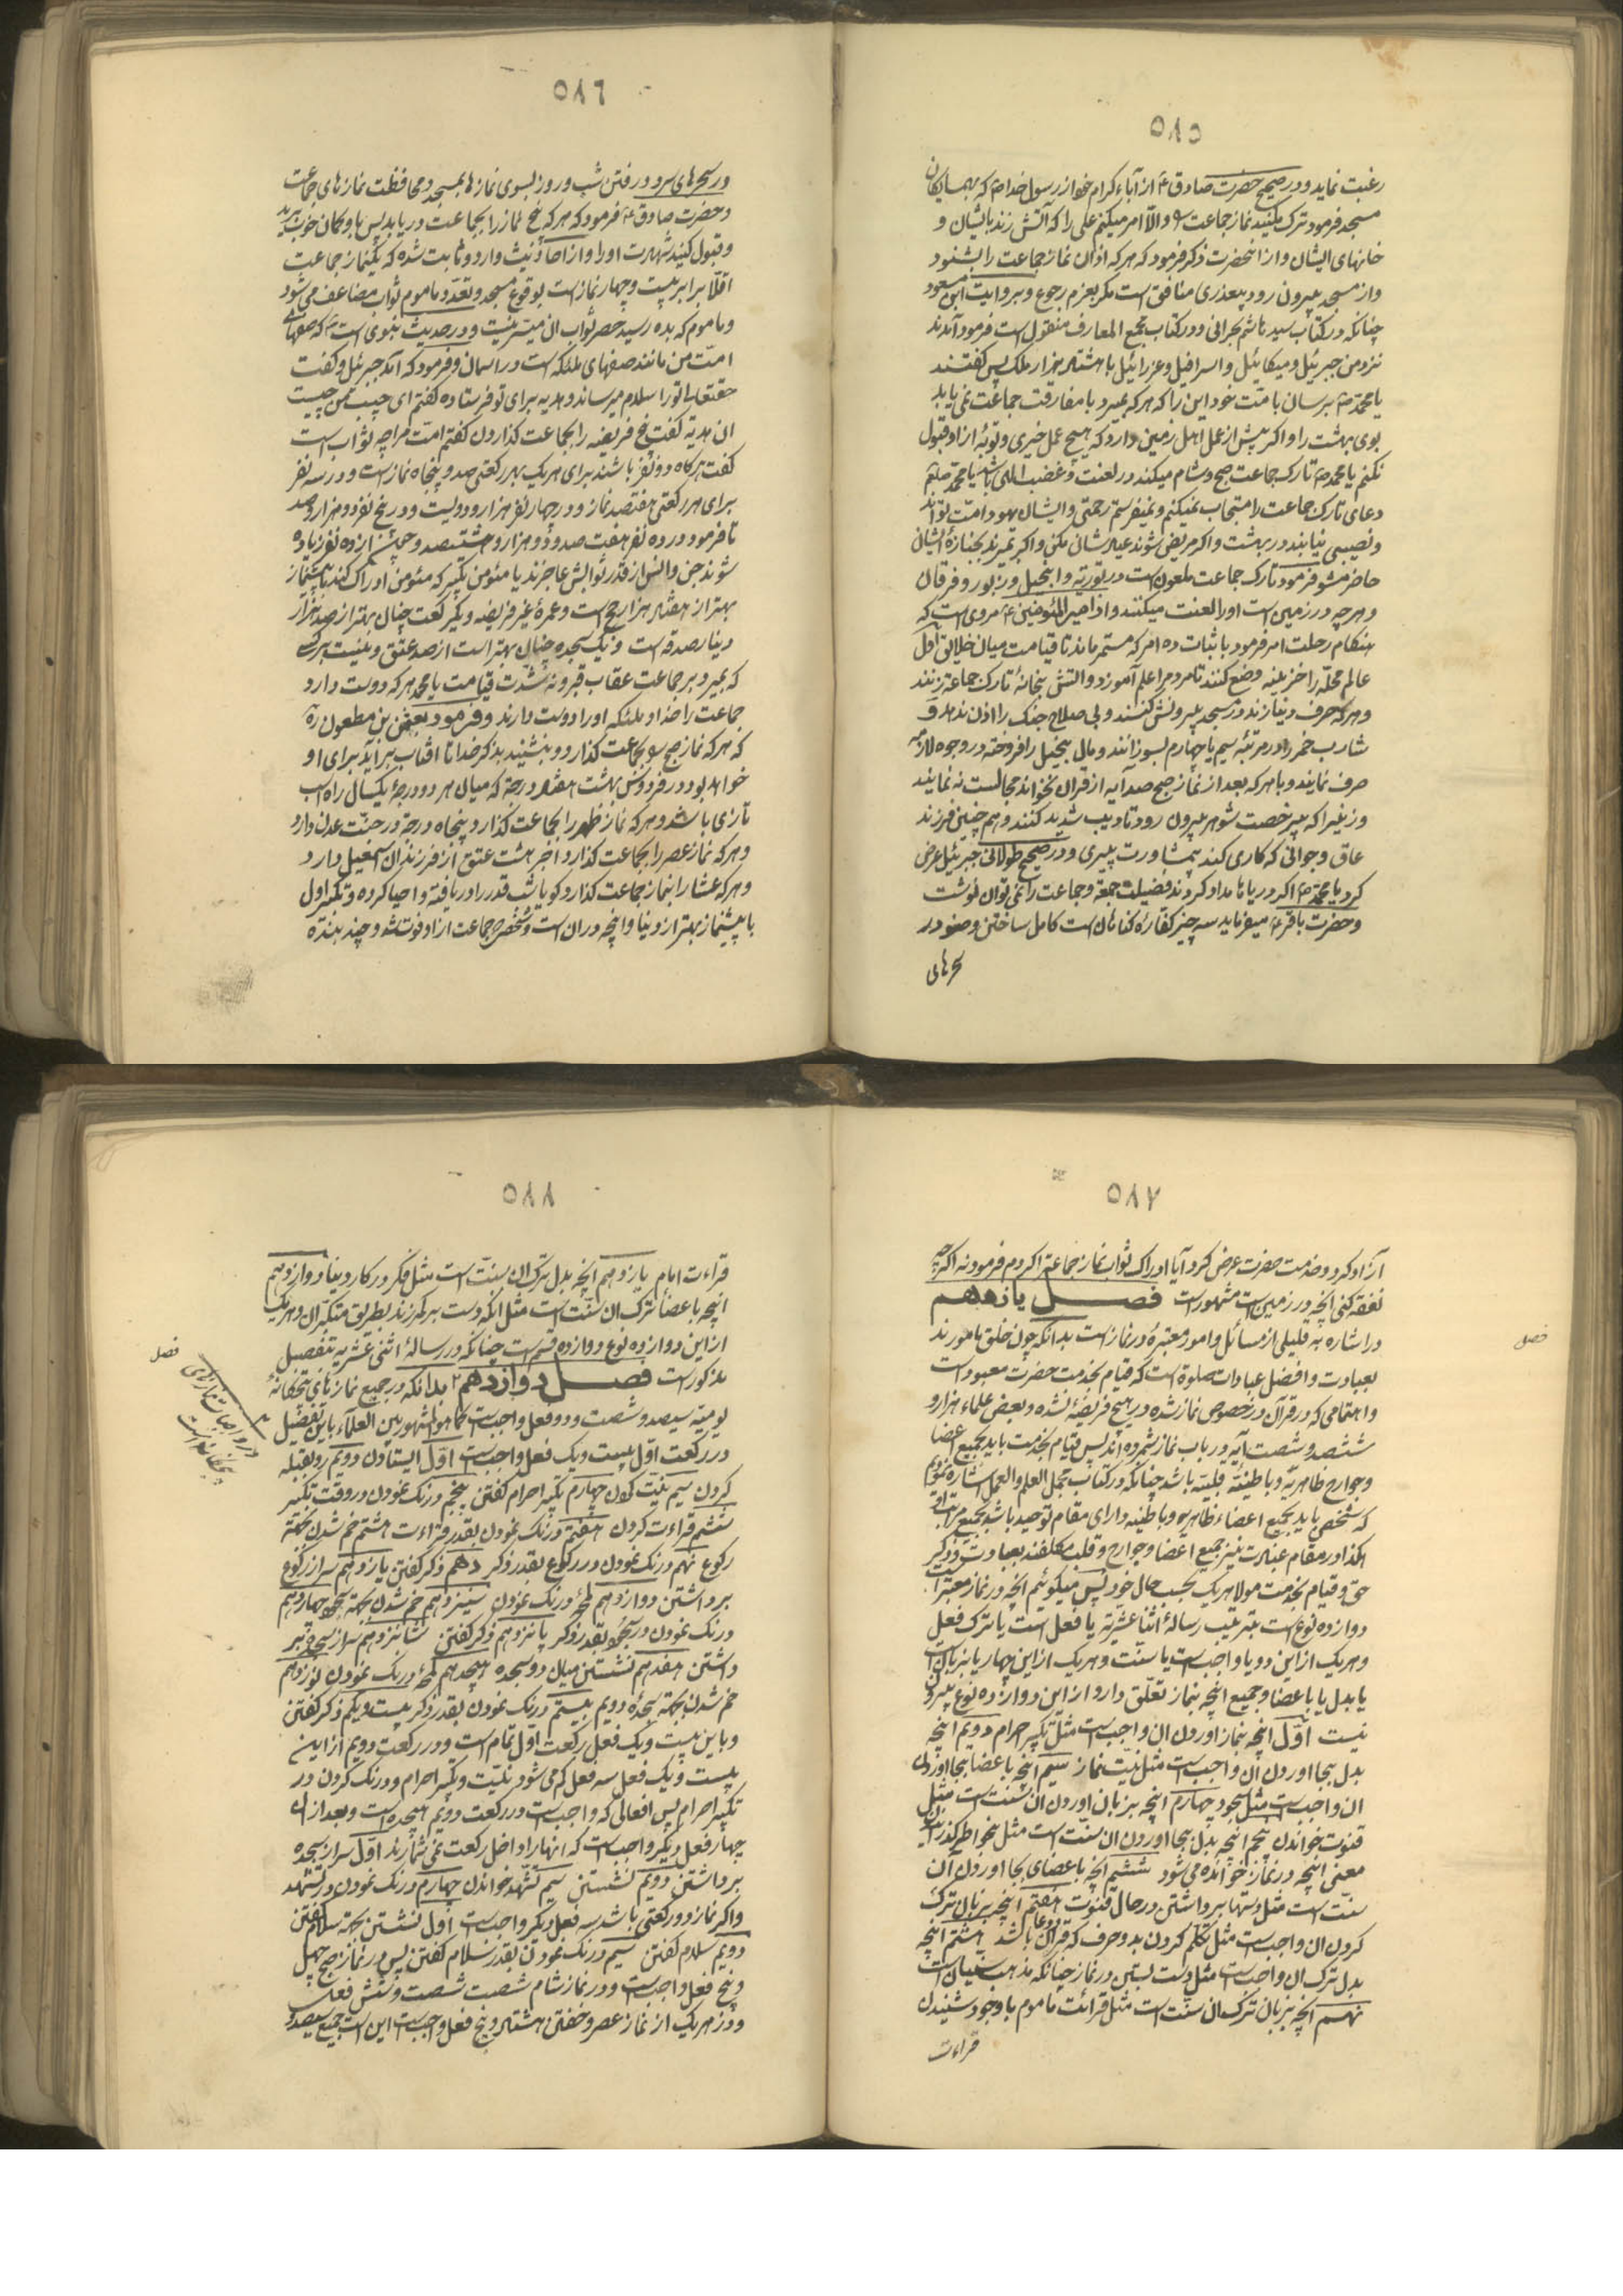 ۵۸۵
رغبت نماید و در صحیح حضرت صادق ع از آباء کرام خود از رسول خدا ص که بهمسایکان
مسجد فرمود ترک مکنید نماز جماعت را و الّا امر میکنم علی را که آتش زند بایشان و
خانهای ایشان و از انحضرت ذکر فرمود که هر که اذان نماز جماعت را بشنود
و از مسجد بیرون رود بیعذری منافق است مکر بعزم رجوع و بروایت ابن مسعود
چنانکه در کتاب سید هاشم بحرانی و در کتاب مجمع المعارف منقول است فرمود آمدند
نزد من جبرئیل و میکائیل و اسرافیل و عزرائیل با هشتاد هزار ملک پس کفتند
یا محمد ص برسان بامّت خود این را که هر که بمیرد با مفارقت جماعت نمی یابد
بوی بهشت را و اکر پیش از عمل اهل زمین دارد که هیچ عمل خیری و توبه از او قبول
نکنم یا محمد ص تارک جماعت صبح و شام میکند در لعنت و غضب الهی باشد یا محمد صلعم
دعای تارک جماعت را مستجاب نمیکنم و نمیفرستم رحمتی و ایشان یهود امّت تواند
و نصیبی نیابند در بهشت و اکر مریض شوند عیادتشان مکن و اکر بمیرند بجنازهٔ ایشان
حاضر مشو فرمود تارک جماعت ملعون است در توریة و انجیل و زبور و فرقان
و هر چه در زمین است او را لعنت میکنند و از امیر المؤمنین ع مروی است که
هنکام رحلت امر فرمود باثبات ده امر که مستمر ماند تا قیامت میان خلایق اول
عالم محلّه را خزینه وضع کنند تا مردم را علم آموزد و آتش بخانهٔ تارک جماعة زنند
و هر که حرف دنیا زند در مسجد بیرونش کنند و بی صلاح جنک را اذن ندهد و
شارب خمر را در مرتبهٔ سیم یا چهارم بسوزانند و مال بخیل را فروخته در وجوه لازمه
صرف نمایند و با هر که بعد از نماز صبح صد آیه از قران نخواند مجالست نه نمایند
و زنیرا که بیرخصت شوهر بیرون رود تادیب شدید کنند و هم چنین فرزند
عاق و جوانی که کاری کند بیمشاورت پیری و در صحیح طولانی جبرئیل عرض
کرد یا محمد ص اکر دریاها مداد کردند فضیلت جمعة و جماعت را نمی توان نوشت
و حضرت باقر ع میفرماید سه چیز کفارهٔ کناهان است کامل ساختن وضو در
سحرهای
۵۸۶
در سحرهای سرد و رفتن شب و روز بسوی نمازها بمسجد و محافظت نمازهای جماعت
و حضرت صادق ع فرمود که هر که پنج نماز را بجماعت دریابد پس باو کمان خوب برید
و قبول کنید شهادت او را و از احادیث وارد و ثابت شده که یکنماز جماعت
اقلّا برابر بیست و چهار نماز است بوقوع مسجد و تعدّد ماموم ثواب مضاعف می شود
و ماموم که بده رسید حصر ثواب ان میسّر نیست و در حدیث نبوی است ص که صفهای
امّت من مانند صفهای ملئکه است در اسمان و فرمود که آمد جبرئیل و کفت
حقتعالی تو را سلام میرساند و هدیه برای تو فرستاده کفتم ای حبیب من چیست
ان هدیه کفت پنج فریضه را بجماعت کذاردن کفتم امّت مرا چه ثواب است
کفت هر کاه دو نفر باشند برای هر یک بهر رکعتی صد و پنجاه نماز است و در سه نفر
برای هر رکعتی هفتصد نماز و در چهار نفر هزار و دویست و در پنج نفر دو هزار و صد
تا فرمود در ده نفر هفت صد و دو هزار و هشتصد و چون از ده نفر زیاده
شوند جن و انس از قدر ثوابش عاجزند یا مؤمن تکبیر که مؤمن ادراک کند با پیشنماز
بهتر از هفتاد هزار حج است و عمره غیر فریضه و یکرکعت چنان بهتر از صد هزار
دینار صدقه است و یک سجده چنان بهتر است از صد عتق و نیست بر کسی
که بمیرد بر جماعت عقاب قبر و نه شدّت قیامت یا محمد هر که دوست دارد
جماعت را خدا و ملئکه او را دوست دارند و فرمود بعثمن بن مظعون ره
که هر که نماز صبح را بجماعت کذارد و بنشیند بذکر خدا تا افتاب برآید برای او
خواهد بود در فردوس بهشت هفتاد درجة که میان هر دو درجهٔ یکسال راه اسب
تازی باشد و هر که نماز ظهر را بجماعت کذارد پنجاه درجه در جنّت عدن دارد
و هر که نماز عصر را بجماعت کذارد اجر هشت عتق از فرزندان اسمعیل دارد
و هر که عشا را بنماز جماعت کذارد کویا شب قدر را دریافته و احیا کرده و تکبیر اول
با پیشنماز بهتر از دنیا و انچه در ان است و شخصی جماعت از او فوت شد و چند بنده
۵۸۷
آزاد کرد و خدمت حضرت عرض کرد آیا ادراک ثواب نماز جماعة را کردم فرمود نه اکر چه
نفقه کنی انچه در زمین است مشهور است فصل یازدهم
در اشاره به قلیلی از مسائل و امور معتبرهٔ در نماز است بدانکه چون خلق مامورند
بعبادت و افضل عبادات صلوة است که قیام بخدمت حضرت معبود است
و اهتمامی که در قرآن در خصوص نماز شده در هیچ فریضهٔ نشده و بعضی علماء هزار و
ششصد و شصت آیه در باب نماز شمرده اند پس قیام بخدمت باید بجمیع اعضا
و جوارح ظاهریّه و باطنیّه قلبیّه باشد چنانکه در کتاب مجمل العلم و العمل اشاره نمودیم
که شخص باید بجمیع اعضاء ظاهریه و باطنیه دارای مقام توحید باشد بجمیع مراتب
هکذا در مقام عبادت نیز جمیع اعضا و جوارح و قلب مکلفند بعبادت و ذکر
حق و قیام بخدمت مولا هر یک بحسب حال خود پس میکوئیم انچه در نماز معتبر است
دوازده نوع است بترتیب رسالهٔ اثنا عشریّه یا فعل است یا ترک فعل
و هر یک از این دو یا واجب است یا سنّت و هر یک از این چهار یا بزبان است
یا بدل یا باعضا و جمیع انچه بنماز تعلّق دارد از این دوازده نوع بیرون
نیست اوّل انچه بنماز اوردن ان واجب است مثل تکبیر احرام دویم انچه
بدل بجا اوردن ان واجب است مثل نیّت نماز سیم انچه باعضا بجا اوردن
ان واجب است مثل سجود چهارم انچه بزبان اوردن ان سنّت است مثل
قنوت خواندن پنجم انچه بدل بجا اوردن ان سنّت است مثل بخواطر کذرانیدن
معنی انچه در نماز خوانده می شود ششم انچه باعضای بجا اوردن ان
سنّت است مثل دستها برداشتن در حال قنوت هفتم انچه بزبان ترک
کردن ان واجب است مثل تکلّم کردن بدو حرف که قران و دعا باشد هشتم انچه
بدل ترک ان واجب است مثل دست بستن در نماز چنانکه مذهب سنیان است
نهم انچه بزبان ترک ان سنّت است مثل قرائت ماموم با وجود شنیدن
قراءت
فصل
۵۸۸
قراءت امام یازدهم انچه بدل ترک ان سنّت است مثل فکر در کار دنیا دوازدهم
انچه باعضا ترک ان سنّت است مثل انکه دست بر کمر زند بطریق متکبّران و هر یک
از این دوازده نوع دوازده قسم است چنانکه در رسالهٔ اثنی عشریه بتفصیل
مذکور است فصل دوازدهم بدانکه در جمیع نمازهای پنجکانهٔ
یومیّه سیصد و شصت و دو فعل واجب است کما هو المشهور بین العلمآء باین تفصیل
در رکعت اوّل بیست و یک فعل واجب است اوّل ایستادن دویم رو بقبله
کردن سیم نیّت کردن چهارم تکبیر احرام کفتن پنجم درنک نمودن در وقت تکبیر
ششم قراءت کردن هفتم درنک نمودن بقدر قراءت هشتم خم شدن بجهة
رکوع نهم درنک نمودن در رکوع بقدر ذکر دهم ذکر کفتن یازدهم سر از رکوع
برداشتن دوازدهم لمحهٔ درنک نمودن سیزدهم خم شدن بجهة سجود چهاردهم
درنک نمودن در سجود بقدر ذکر پانزدهم ذکر کفتن شانزدهم سر از سجود بر
داشتن هفدهم نشستن میان دو سجده هیجدهم لمحهٔ درنک نمودن نوزدهم
خم شدن بجهة سجدهٔ دویم بیستم درنک نمودن بقدر ذکر بیست و یکم ذکر کفتن
و باین بیست و یک فعل رکعت اوّل تمام است و در رکعت دویم از این
بیست و یک فعل سه فعل کم می شود نیّت و تکبیر احرام و درنک کردن در
تکبیر احرام پس افعالی که واجب است در رکعت دویم هیجده است و بعد از ان
چهار فعل دیکر واجب است که انها را داخل رکعت نمی شمارند اوّل سر از سجده
برداشتن دویم نشستن سیم تشهّد خواندن چهارم درنک نمودن در تشهّد
و اکر نماز دو رکعتی باشد سه فعل دیکر واجب است اوّل نشستن بجهة سلام کفتن
دویم سلام کفتن سیم درنک نمودن بقدر سلام کفتن پس در نماز صبح چهل
و پنج فعل واجب است و در نماز شام شصت و شش فعل
و در هر یک از نماز عصر و خفتن هشتاد و پنج فعل واجب است این است جمیع سیصد و
فصل
در واجبات نمازهای
پنجکانه است